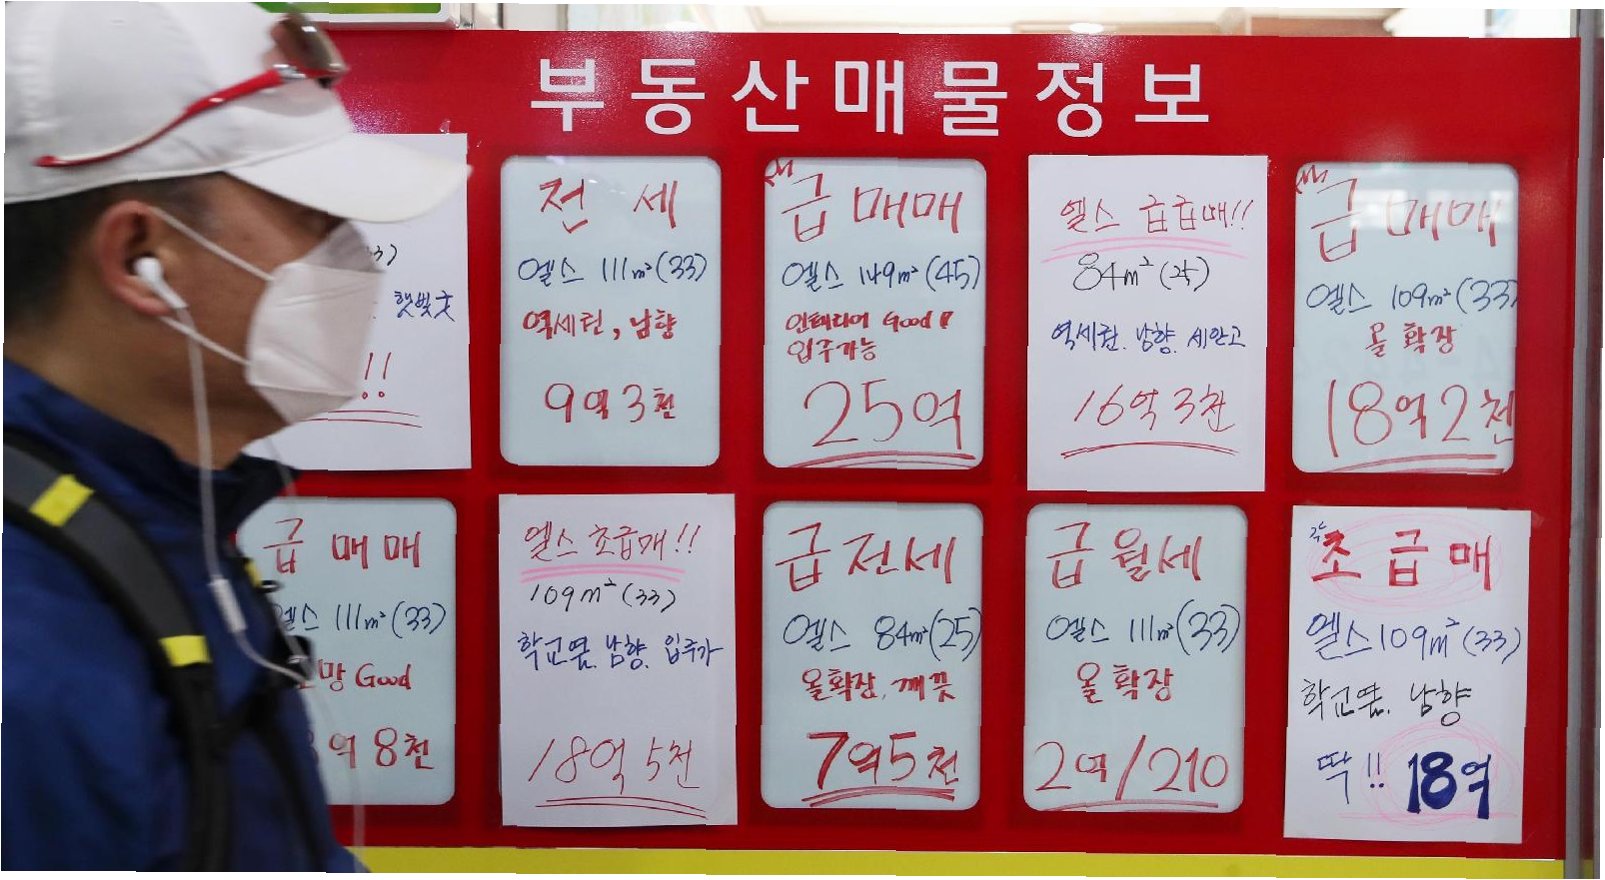 부동산매물정보
햇빛
!!
전 세
엘스 111㎡(33)
역세권, 남향
9억 3천
급매매
엘스 149㎡(45)
인테리어 Good!
입주가능
25억
엘스 급급매!!
84㎡(25)
역세권. 남향. 세안고
16억 3천
급매매
엘스 109㎡(33)
올 확장
18억 2천
급 매매
엘스 111㎡(33)
망 Good
억 8천
엘스 초급매!!
109㎡(33)
학교옆. 남향. 입주가
18억 5천
급전세
엘스 84㎡(25)
올확장, 깨끗
7억5천
급월세
엘스 111㎡(33)
올 확장
2억/210
초급매
엘스109㎡(33)
학교옆. 남향
딱!! 18억